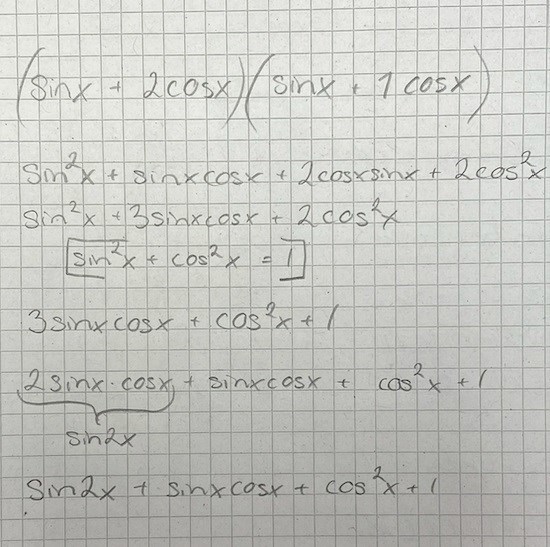 (sinx + 2cosx)(sinx + 1cosx)
sin²x + sinxcosx + 2cosxsinx + 2cos²x
sin²x + 3sinxcosx + 2cos²x
sin²x + cos²x = 1
3sinxcosx + cos²x + 1
2sinx·cosx + sinxcosx + cos²x + 1
sin2x
sin2x + sinxcosx + cos²x + 1